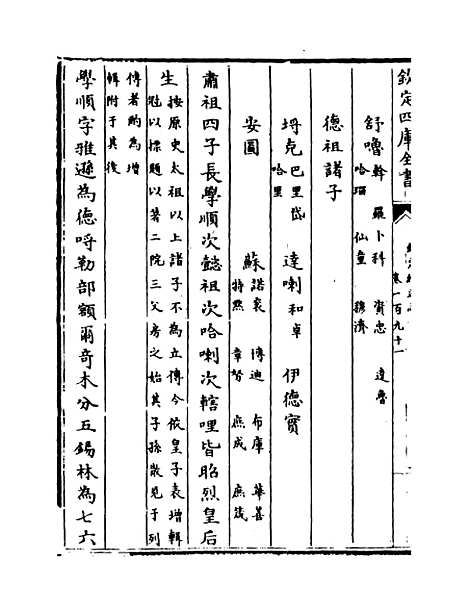 欽定四庫全書
卷一百九十一
舒嚕 幹 羅卜科 資忠 達魯
哈瑠 仙童 穆濟
德祖諸子
坍克 巴里岱 達喇 和卓 伊德實
哈里
安圖 蘇 諾袞 博迪 布庫 華善
特默 韋努 庶成 庶箴
肅祖四子長學順次懿祖次哈喇次轄哩皆昭烈皇后
生 按原史太祖以上諸子不為立傳今依皇子表增輯
冠以標題以著二院三父房之始其子孫散見于列
傳者酌為增
輯附于其後
學順字雅遜為德呼勒部額爾奇木分五錫林為七六